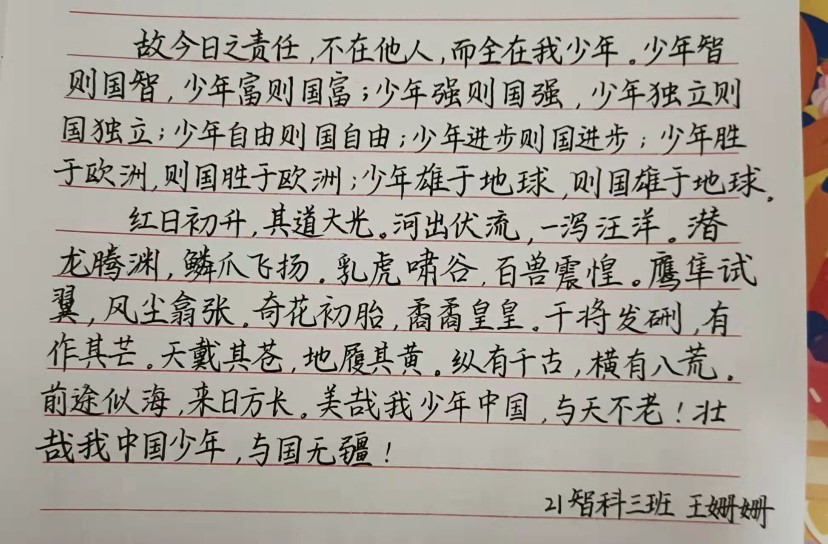 故今日之责任,不在他人,而全在我少年。少年智
则国智,少年富则国富;少年强则国强,少年独立则
国独立;少年自由则国自由;少年进步则国进步;少年胜
于欧洲,则国胜于欧洲;少年雄于地球,则国雄于地球。
红日初升,其道大光。河出伏流,一泻汪洋。潜
龙腾渊,鳞爪飞扬。乳虎啸谷,百兽震惶。鹰隼试
翼,风尘翕张。奇花初胎,矞矞皇皇。干将发硎,有
作其芒。天戴其苍,地履其黄。纵有千古,横有八荒。
前途似海,来日方长。美哉我少年中国,与天不老!壮
哉我中国少年,与国无疆!
21智科三班 王姗姗